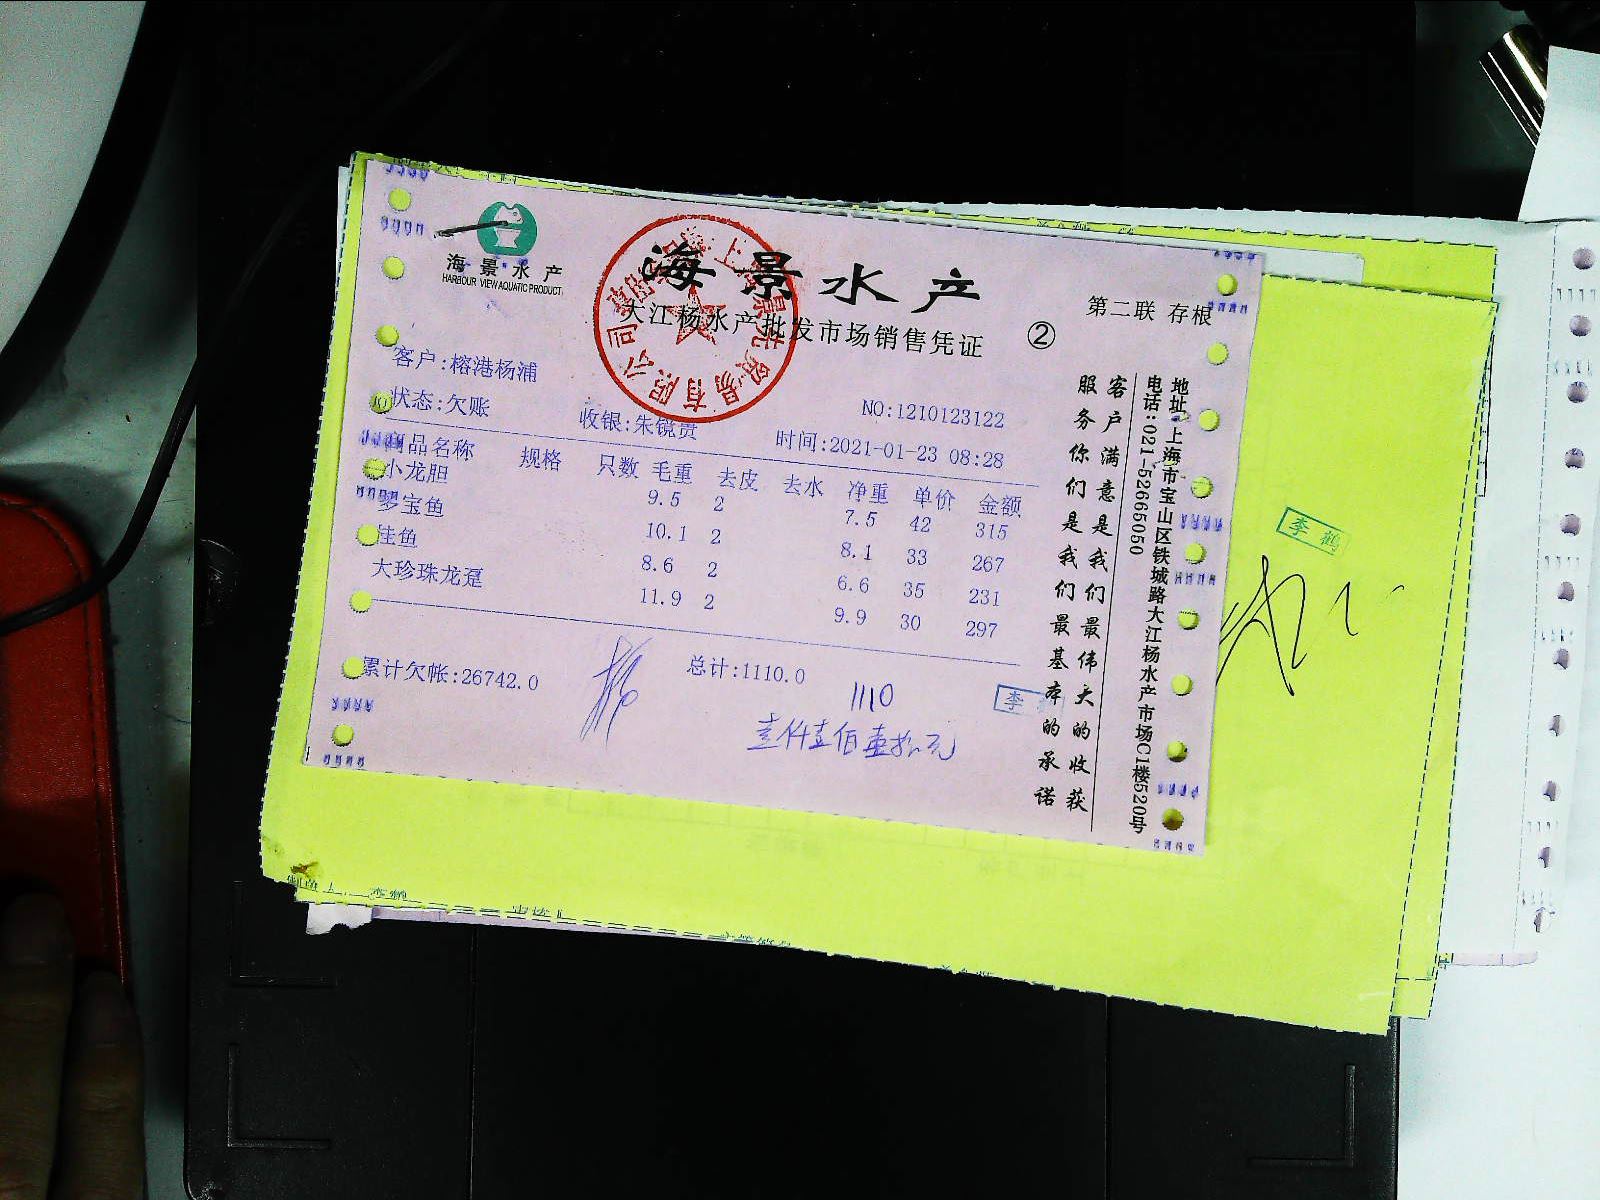 海景水产
HARBOUR VIEW AQUATIC PRODUCT
海景水产
大江杨水产批发市场销售凭证
②
第二联 存根
客户:榕港杨浦
状态:欠账
收银:朱锐贵
NO:1210123122
时间:2021-01-23 08:28
商品名称 规格 只数 毛重 去皮 去水 净重 单价 金额
小龙胆 9.5 2 7.5 42 315
多宝鱼 10.1 2 8.1 33 267
桂鱼 8.6 2 6.6 35 231
大珍珠龙趸 11.9 2 9.9 30 297
累计欠帐:26742.0
总计:1110.0
1110
壹仟壹佰壹拾元
李
客户满意是我们最伟大的收获
服务你们是我们最基本的承诺
地址:上海市宝山区铁城路大江杨水产市场C1楼520号
电话:021-52665050
李鹤